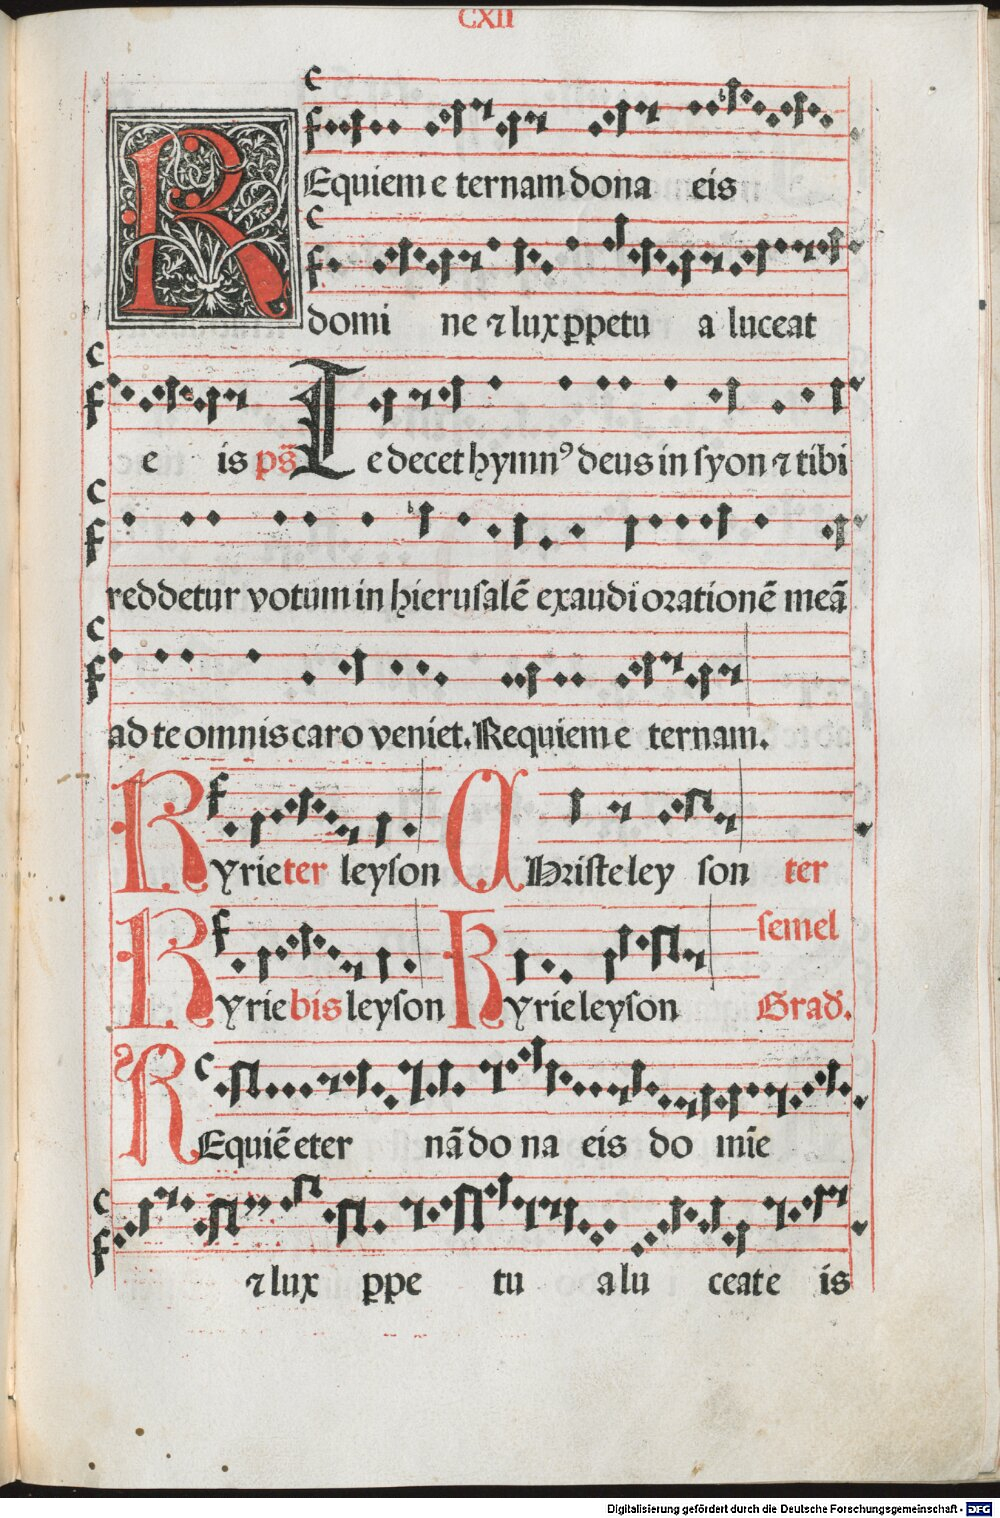 CXII
REquiem e ternam dona eis
domi ne ⁊ lux ꝑpetu a luceat
e is ps̄ Te decet hymnꝰ deus in syon ⁊ tibi
reddetur votum in hierusalē exaudi orationē meā
ad te omnis caro veniet. Requiem e ternam.
Kyrie ter leyson CHriste ley son ter
Kyrie bis leyson Kyrieleyson semel
Grad̄.
REquiē eter nā do na eis do mīe
⁊ lux ꝑpe tu a lu ceat e is
Digitalisierung gefördert durch die Deutsche Forschungsgemeinschaft - DFG